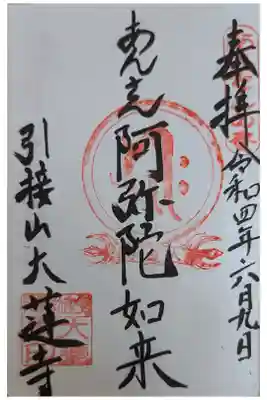 奉拝 令和四年六月九日
あんざん 阿弥陀如来
引接山大蓮寺